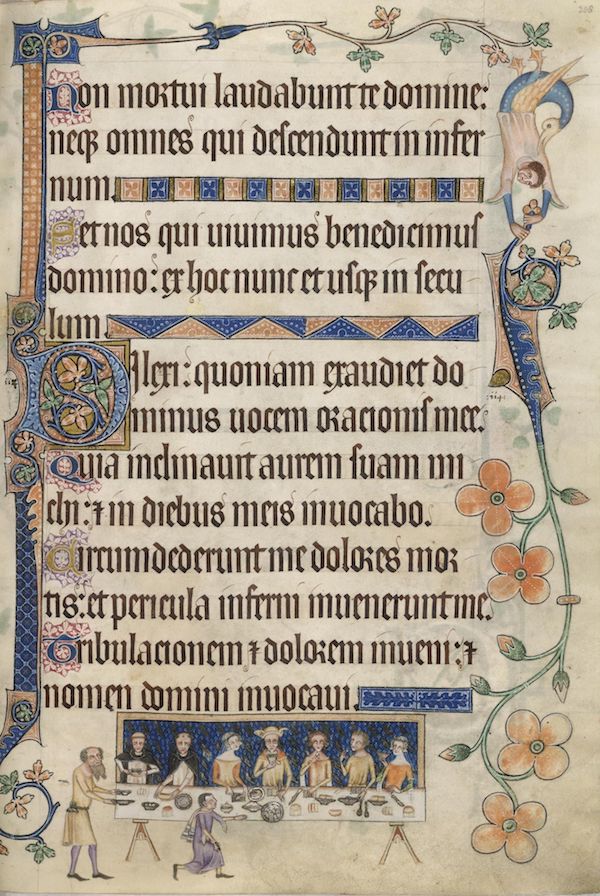 208
Non mortui laudabunt te domine:
neq omnes qui descendunt in infer
num.
Set nos qui uiuimus benedicimus
domino: ex hoc nunc et usq in secu
lum.
Dilexi: quoniam exaudiet do
minus uocem oracionis mee.
Quia inclinauit aurem suam mi
chi: ⁊ in diebus meis inuocabo.
Circumdederunt me dolores mor
tis: et pericula inferni inuenerunt me.
Tribulacionem ⁊ dolorem inueni: ⁊
nomen domini inuocaui.